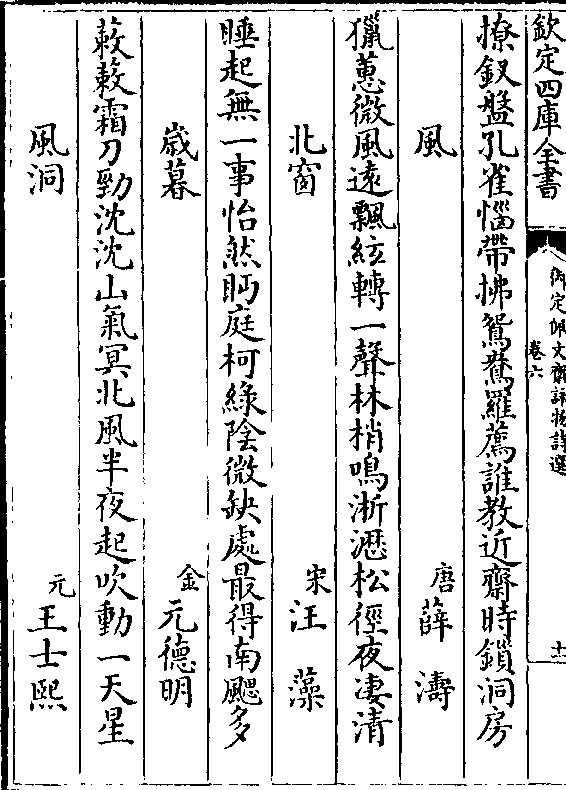 欽定四庫全書
御定佩文齋詠物詩選
卷六
十一
撩釵盤孔雀惱帶拂鴛鴦羅薦誰教近齋時鎖洞房
風
唐 薛濤
獵蕙微風遠飄絃轉一聲林梢鳴淅瀝松徑夜凄清
北窗
宋 汪藻
睡起無一事怡然眄庭柯綠陰微缺處最得南颸多
歲暮
金 元德明
蔌蔌霜刀勁沈沈山氣冥北風半夜起吹動一天星
風洞
元 王士熙